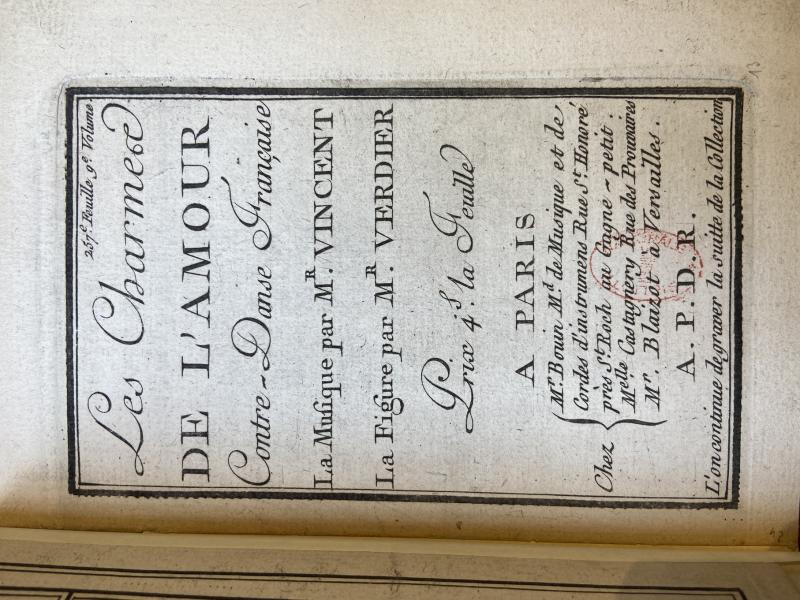 257.e Feuille 9.e Volume.
Les Charmes
DE L'AMOUR
Contre-Danse Française
La Musique par M.R VINCENT
La Figure par M.R VERDIER
Prix 4.s la Feuille
A PARIS
Chez
M.r Bouin M.d de Musique et de
Cordes d'instrumens Rue S.t Honoré
près S.t Roch au Gagne-petit.
M.elle Castagniery Rue des Prouvaires
M.r Blaizot à Versailles.
A. P. D. R.
L'on continue de graver la suitte de la Collection
13